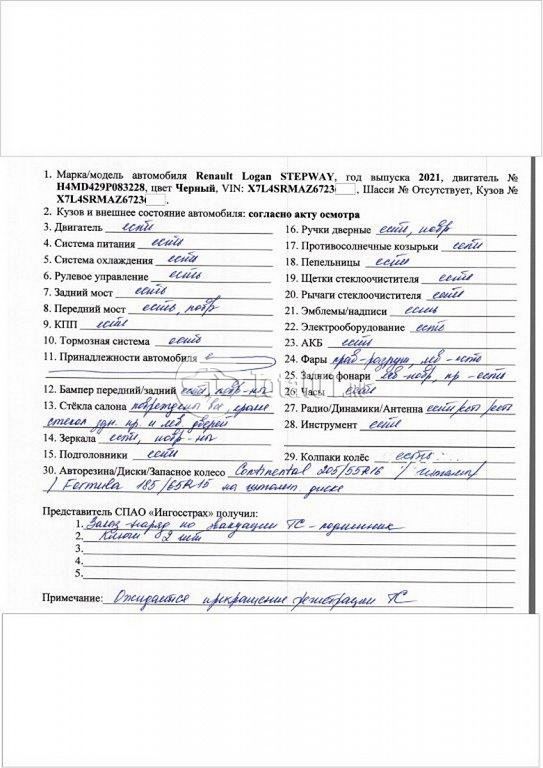 1. Марка/модель автомобиля Renault Logan STEPWAY, год выпуска 2021, двигатель №
H4MD429P083228, цвет Черный, VIN: X7L4SRMAZ6723, Шасси № Отсутствует, Кузов №
X7L4SRMAZ6723.
2. Кузов и внешнее состояние автомобиля: согласно акту осмотра
3. Двигатель есть
4. Система питания есть
5. Система охлаждения есть
6. Рулевое управление есть
7. Задний мост есть
8. Передний мост есть, повр
9. КПП есть
10. Тормозная система есть
11. Принадлежности автомобиля
12. Бампер передний/задний есть повр-ны
13. Стёкла салона повреждены все, кроме
стекол здн. пр. и лев. дверей
14. Зеркала есть, повр-ны
15. Подголовники есть
16. Ручки дверные есть, повр
17. Противосолнечные козырьки есть
18. Пепельницы есть
19. Щетки стеклоочистителя есть
20. Рычаги стеклоочистителя есть
21. Эмблемы/надписи есть
22. Электрооборудование есть
23. АКБ есть
24. Фары прав-разруш, лев-есть
25. Задние фонари лев-повр, пр-есть
26. Часы есть
27. Радио/Динамики/Антенна есть/есть/есть
28. Инструмент есть
29. Колпаки колёс есть
30. Авторезина/Диски/Запасное колесо Continental 205/55R16 / штамп/
/ Formula 185/65R15 на штамп диске
Представитель СПАО «Ингосстрах» получил:
1. Заказ-наряд по эвакуации ТС - подлинник
2. Ключи 2 шт
3.
4.
5.
Примечание: Ожидается прекращение регистрации ТС